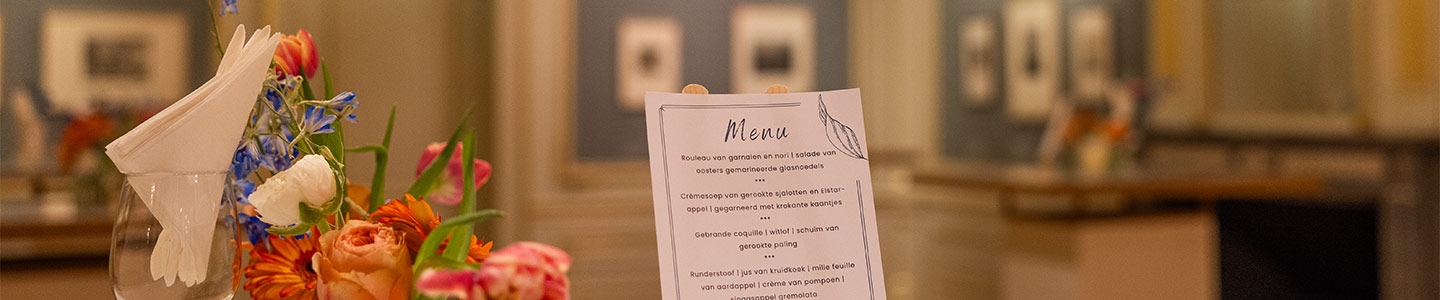 Menu
Rouleau van garnalen en nori | salade van
oosters gemarineerde glasnoedels
***
Crèmesoep van gerookte sjalotten en Elstar-
appel | gegarneerd met krokante kaantjes
***
Gebrande coquille | witlof | schuim van
gerookte paling
***
Runderstoof | jus van kruidkoek | mille feuille
van aardappel | crème van pompoen |
sinaasappel gremolata